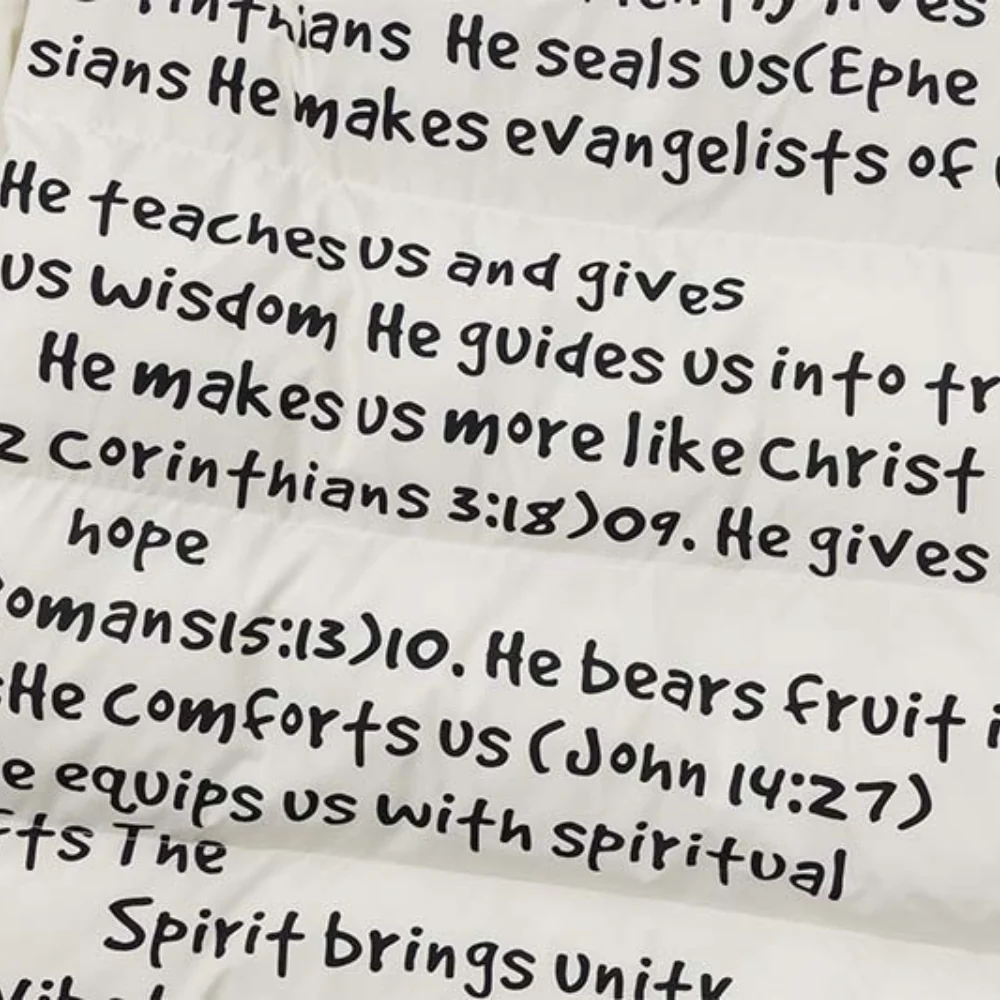 He seals us(Ephe
sians He makes evangelists of
He teaches us and gives
us wisdom He guides us into
He makes us more like Christ
2 Corinthians 3:18)09. He gives
hope
omans15:13)10. He bears fruit
He comforts us (John 14:27)
e equips us with spiritual
fts The
Spirit brings unity